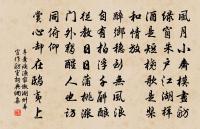 風月小齋模畫舫
綠窗朱戶江湖樣
酒是短橈歌是槳
和情放
醉鄉穩到無風浪
自有拍浮千斛釀
從教日日蒲桃漲
門外獨醒人也訪
同俯仰
賞心卻在鴟夷上
辛棄疾漁家傲湖州幕
官作舫室